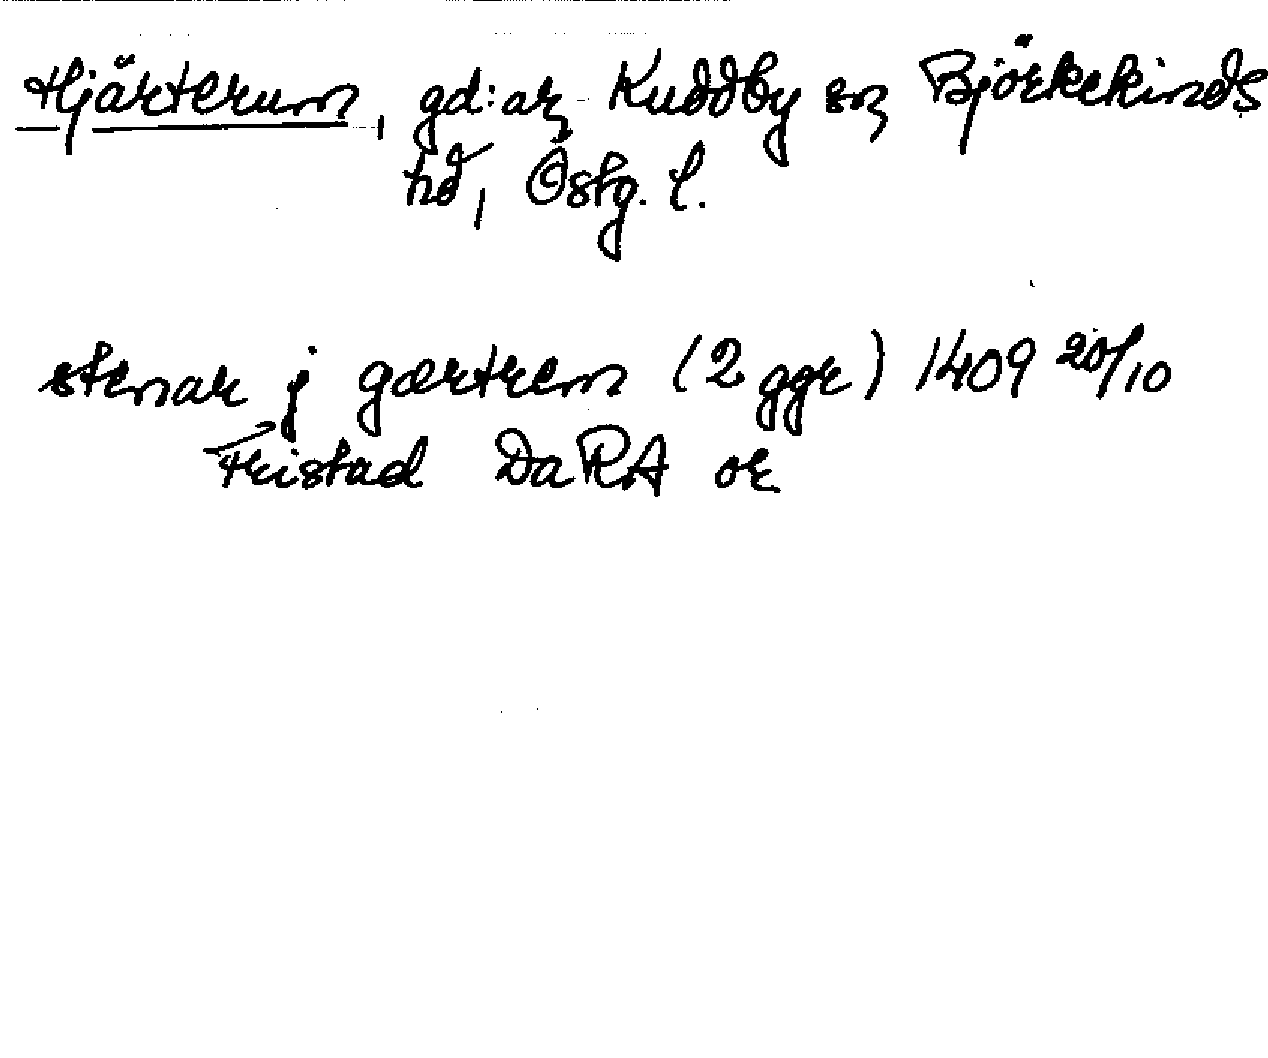 Hjärterum, gd:ar Kuddby sn Björkekinds
hd, Östg. l.
stenar j gærtrem (2 ggr) 1409 20/10
Fristad DaRA or